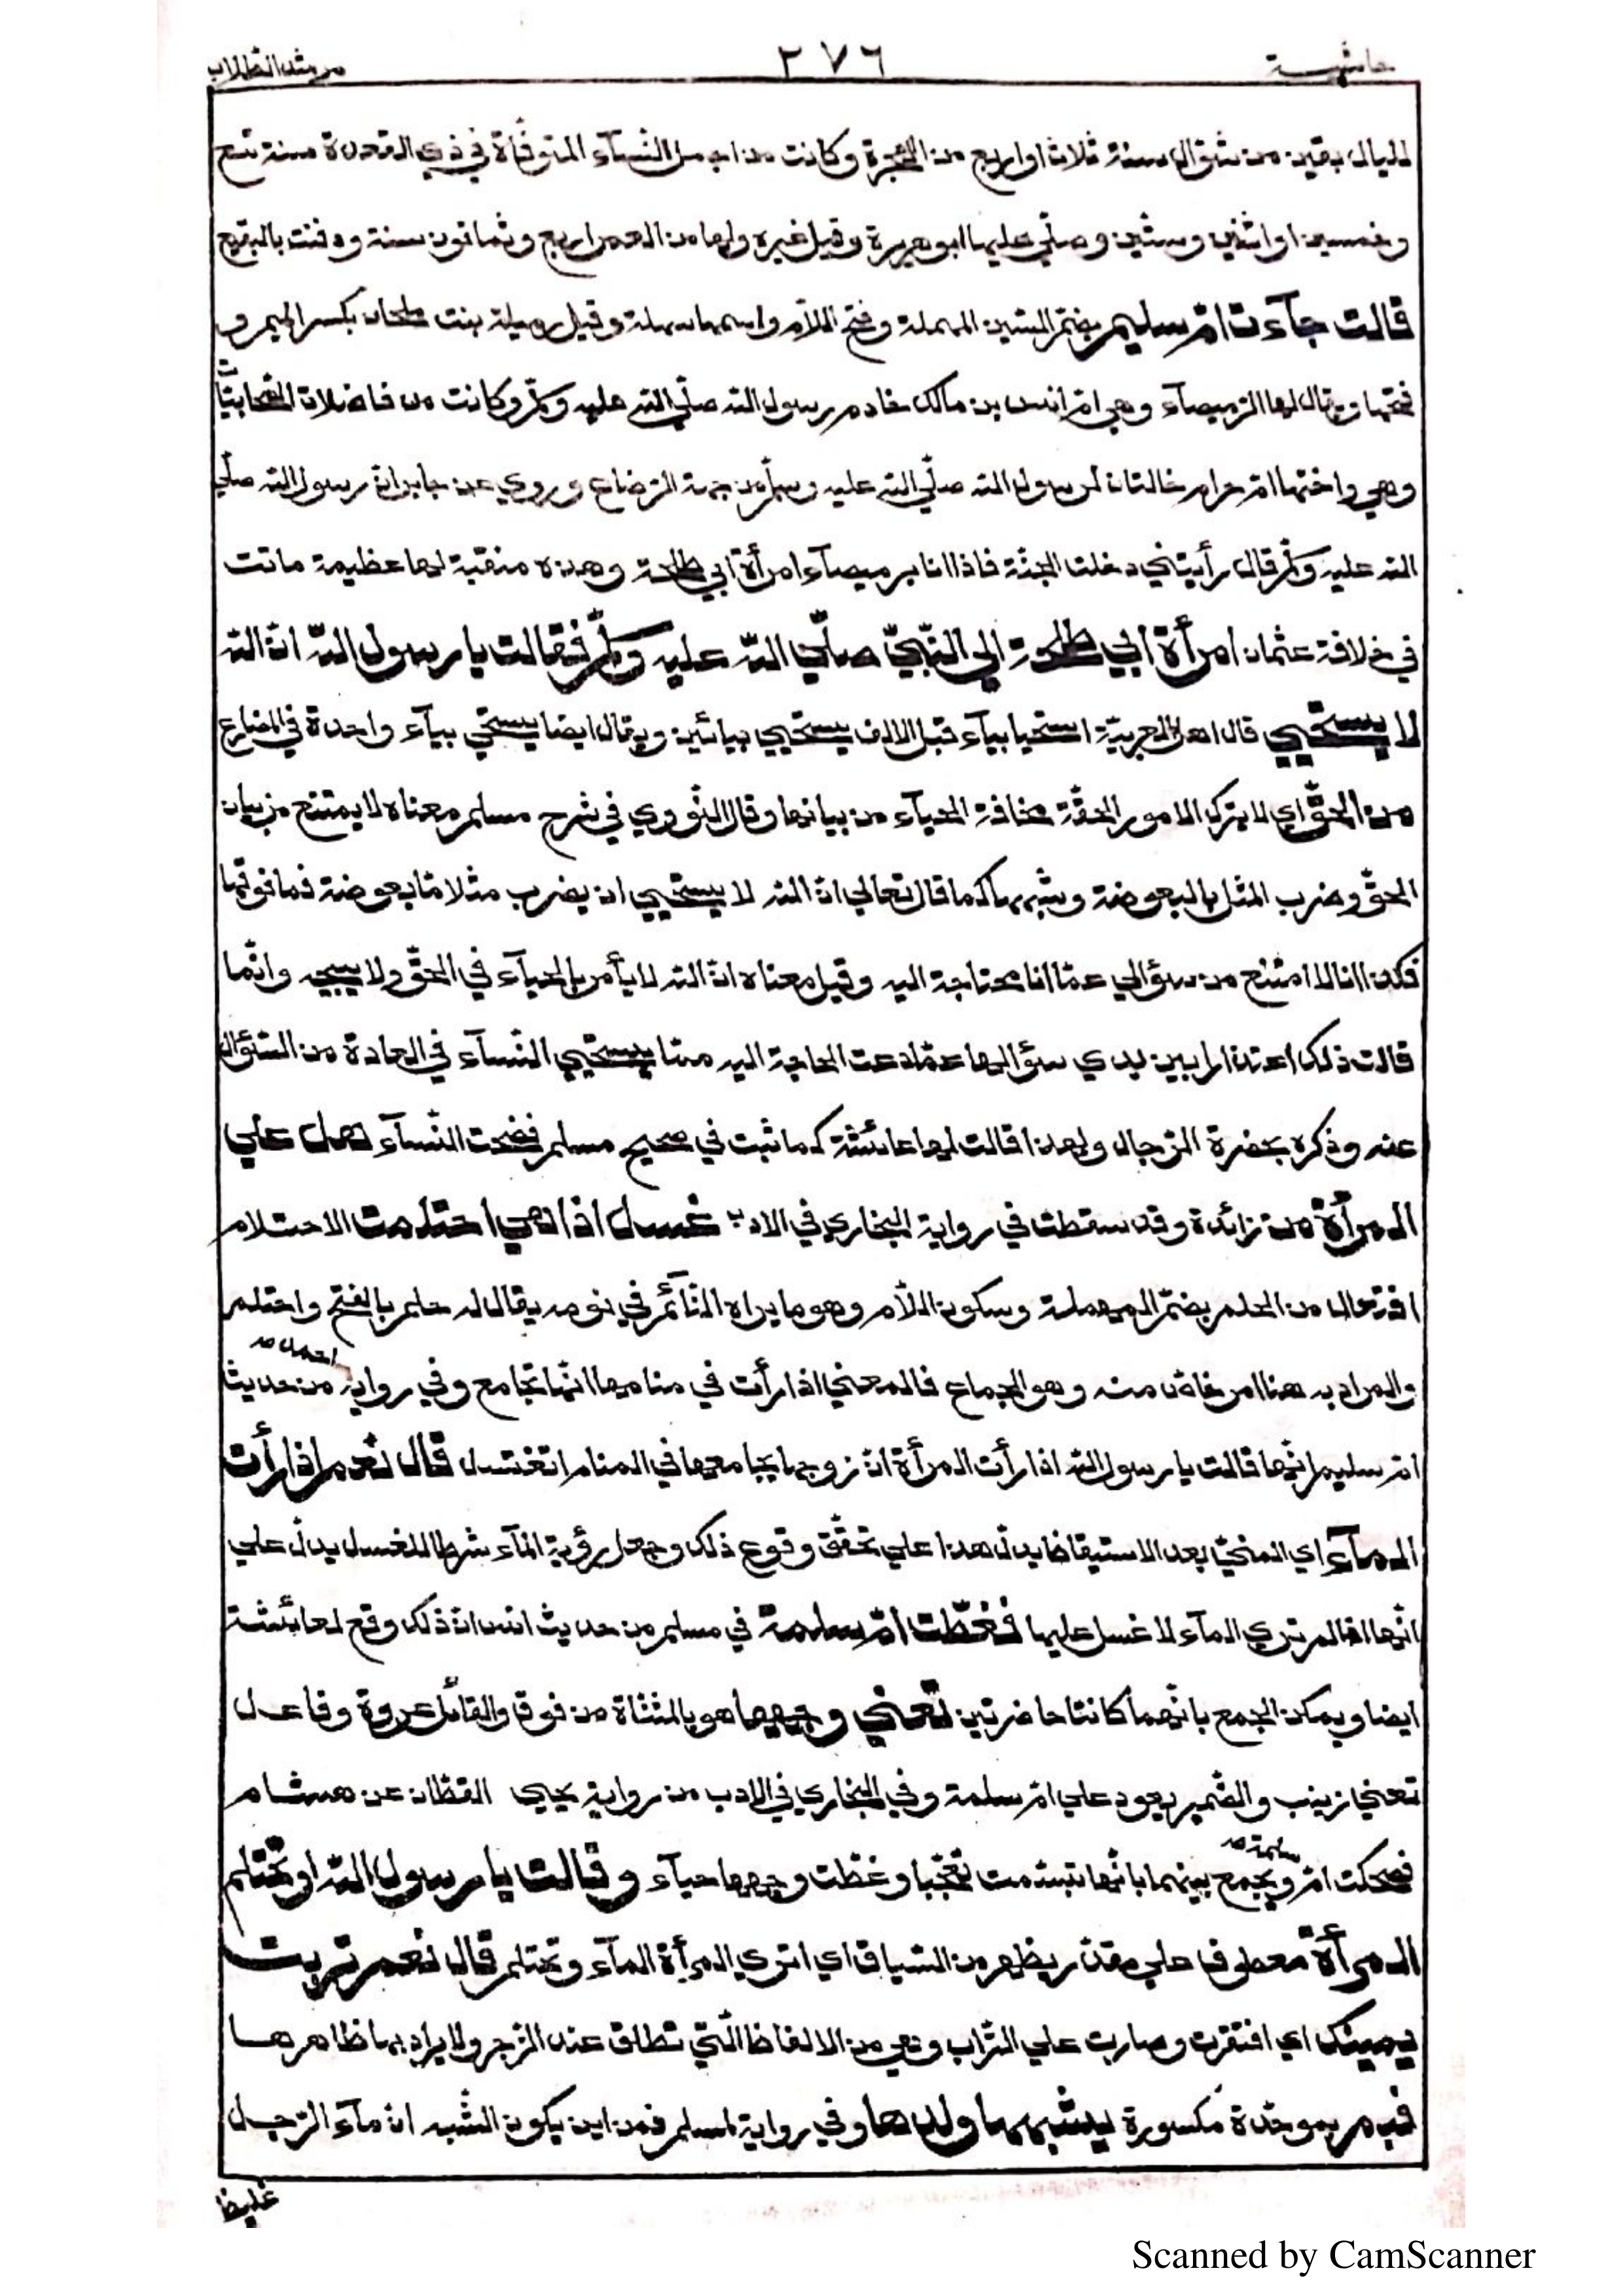 حاشية ٢٧٦ مرشد الطلاب
لليال بقين من شوّال سنة ثلاث او اربع من الهجرة وكانت من اجمل النّسآء المتوفّاة في ذي القعدة سنة تسع
وخمسين او اثنين وستّين وصلّي عليها ابو هريرة وقيل غيره ولها من العمر اربع وثمانون سنة ودفنت بالبقيع
قالت جآءت امّ سليم بضمّ السّين المهملة وفتح اللّام واسمها سهلة وقيل رميلة بنت ملحان بكسر الميم و
فتحها ويقال لها الرّميصآء وهي امّ انس بن مالك خادم رسول الله صلّي الله عليه وسلّم وكانت من فاضلات الصّحابيّات
وهي واختها امّ حرام خالتان لرسول الله صلّي الله عليه وسلّم من جهة الرّضاع وروي عن جابر انّ رسول الله صلّي
الله عليه وسلّم قال رأيتني دخلت الجنّة فاذا انا برميصآء امرأة ابي طلحة وهذه منقبة لها عظيمة ماتت
في خلافة عثمان امرأة ابي طلحة الي النّبيّ صلّي الله عليه وسلّم فقالت يا رسول الله انّ الله
لا يستحيي قال اهل العربيّة استحيا بيآء قبل الالف يستحيي بيائين ويقال ايضا يستحي بيآء واحدة في المضارع
من الحقّ اي لا يترك الامور الحقّة مخافة الحيآء من بيانها وقال النّووي في شرح مسلم معناه لا يمتنع من بيان
الحقّ وضرب المثل بالبعوضة وشبهها كما قال تعالي انّ الله لا يستحيي ان يضرب مثلا مّا بعوضة فما فوقها
فكذا انا لا امتنع من سؤالي عمّا انا محتاجة اليه وقيل معناه انّ الله لا يأمر بالحيآء في الحقّ ولا يبيحه وانّما
قالت ذلك اعتذارا بين يدي سؤالها عمّا دعت الحاجة اليه ممّا يستحيي النّسآء في العادة من السّؤال
عنه وذكره بحضرة الرّجال ولهذا قالت لها عائشة كما ثبت في صحيح مسلم فضحت النّسآء هل علي
المرأة من زائدة وقد سقطت في رواية البخاري في الادب غسل اذا هي احتلمت الاحتلام
افتعال من الحلم بضمّ المهملة وسكون اللّام وهو ما يراه النّآئم في نومه يقال له حلم بالفتح واحتلم
والمراد به هنا امر خاصّ منه وهو الجماع فالمعني اذا رأت في منامها انّها تجامع وفي رواية احمد من حديث
امّ سليم انّها قالت يا رسول الله اذا رأت المرأة انّ زوجها يجامعها في المنام اتغتسل قال نعم اذا رأت
المآء اي المنيّ بعد الاستيقاظ يدلّ هذا علي تحقّق وقوع ذلك وجعل رؤية المآء شرطا للغسل يدلّ علي
انّها اذا لم تري المآء لا غسل عليها فغطّت امّ سلمة في مسلم من حديث انس انّ ذلك وقع لعائشة
ايضا ويمكن الجمع بانّهما كانتا حاضرتين تعني وجهها هو بالمثنّاة من فوق والقائل عروة وفاعل
تعني زينب والضّمير يعود علي امّ سلمة وفي البخاري في الادب من رواية يحيي القطّان عن هشام
فضحكت امّ سلمة ويجمع بينهما بانّها تبسّمت تعجّبا وغطّت وجهها حيآء وقالت يا رسول الله او تحتلم
المرأة معطوف علي مقدّر يظهر من السّياق اي اتري المرأة المآء وتحتلم قال نعم تربت
يمينك اي افتقرت وصارت علي التّراب وهي من الالفاظ الّتي تطلق عند الزّجر ولا يراد بها ظاهرها
فبم بموحّدة مكسورة يشبهها ولدها وفي رواية لمسلم فمن اين يكون الشّبه انّ مآء الرّجل
غليظ
Scanned by CamScanner